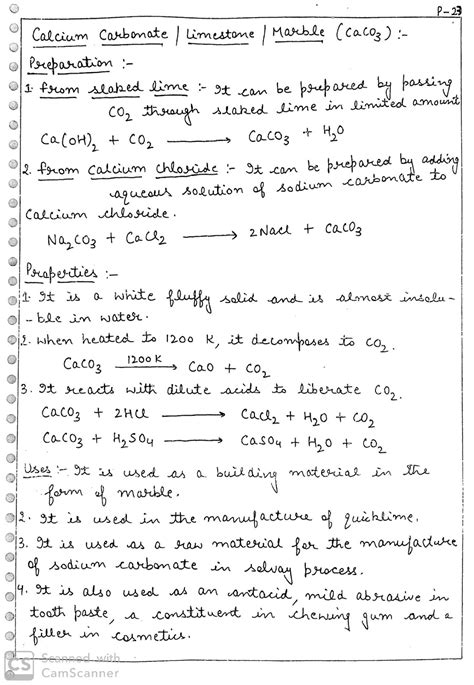 P-23
Calcium Carbonate / Limestone / Marble (CaCO3) :-
Preparation :-
1. From slaked lime :- It can be prepared by passing
CO2 through slaked lime in limited amount
Ca(OH)2 + CO2 ⟶ CaCO3 + H2O
2. From Calcium Chloride :- It can be prepared by adding
aqueous solution of sodium carbonate to
Calcium chloride.
Na2CO3 + CaCl2 ⟶ 2NaCl + CaCO3
Properties :-
1. It is a white fluffy solid and is almost insolu-
-ble in water.
2. When heated to 1200 K, it decomposes to CO2.
CaCO3 ⟶ 1200K CaO + CO2
3. It reacts with dilute acids to liberate CO2.
CaCO3 + 2HCl ⟶ CaCl2 + H2O + CO2
CaCO3 + H2SO4 ⟶ CaSO4 + H2O + CO2
Uses :- It is used as a building material in the
form of marble.
2. It is used in the manufacture of quicklime.
3. It is used as a raw material for the manufacture
of sodium carbonate in solvay process.
4. It is also used as an antacid, mild abrasive in
tooth paste, a constituent in chewing gum and a
filler in cosmetics.
CS Scanned with
CamScanner